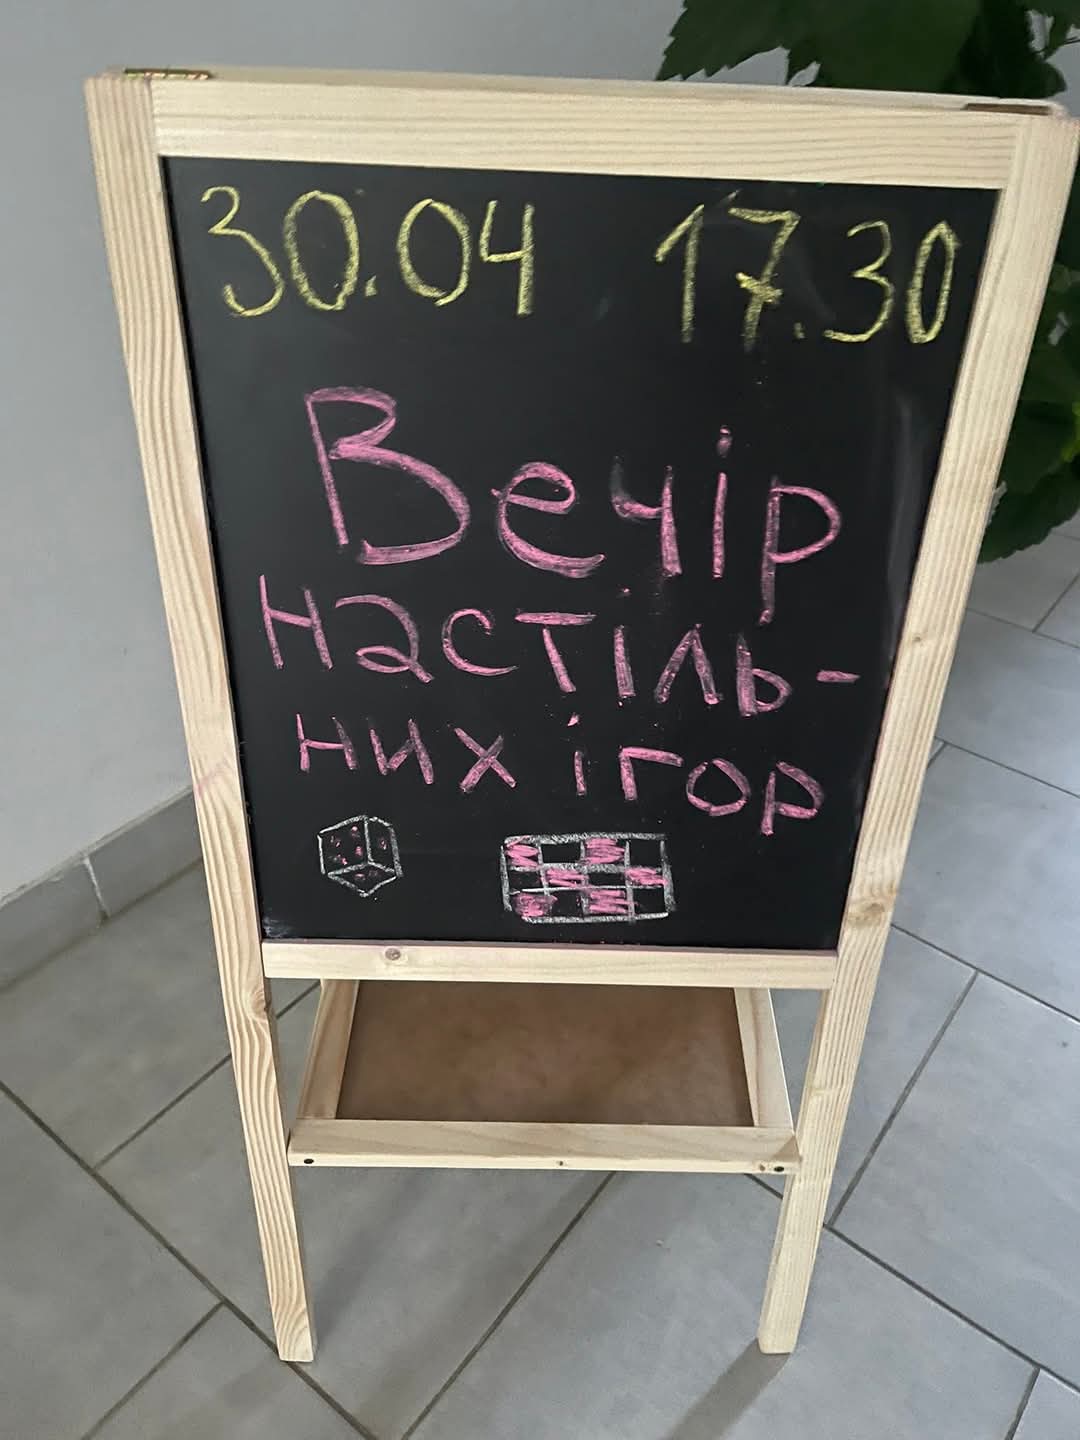 30.04 17.30
Вечір
настіль-
них ігор